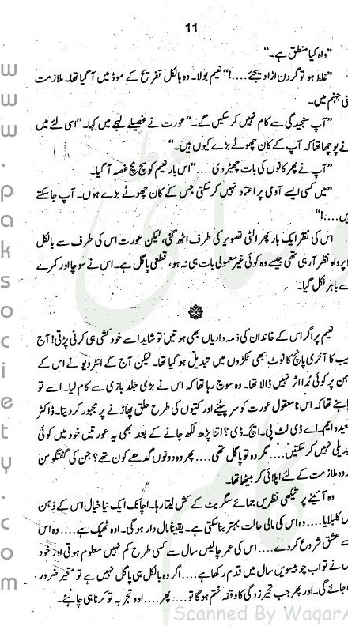 11
"واہ کیا منطق ہے۔"
"غلط ہو تو گردن اڑا دیجئے....!" نعیم بولا۔ وہ بالکل تفریح کے موڈ میں آ گیا تھا۔ ملازمت
جہنم میں۔
"آپ سنجیدگی سے کام نہیں کر سکیں گے۔" عورت نے غصیلے لہجے میں کہا۔ "اسی لئے میں
نے پوچھا تھا کہ آپ کے کان چھوٹے بڑے کیوں ہیں۔"
"آپ نے پھر کانوں کی بات چھیڑ دی...." اس بار نعیم کو سچ مچ غصہ آ گیا۔
"میں کسی ایسے آدمی پر اعتماد نہیں کر سکتی جس کے کان چھوٹے بڑے ہوں۔ آپ جا سکتے
ہیں....!"
اس کی نظر ایک بار پھر الٹی تصویر کی طرف اٹھ گئی، لیکن عورت اس کی طرف سے بالکل
نظر آ رہی تھی جیسے وہ کوئی غیر معمولی بات ہی نہ ہو، قطعی پاگل ہے۔ اس نے سوچا اور کمرے
سے باہر نکل گیا۔
نعیم پر اگر اس کے خاندان کی ذمہ داریاں بھی ہوتیں تو شاید اسے خودکشی ہی کرنی پڑتی! آج
جیب کا آخری پانچ کا نوٹ بھی ٹکڑوں میں تبدیل ہو گیا تھا۔ لیکن آج کے انٹرویو نے اس کے
ذہن پر کوئی برا اثر نہیں ڈالا تھا۔ وہ سوچ رہا تھا کہ اس نے بڑی جلد بازی سے کام لیا۔ اسے تو
چاہئے تھا کہ اس نامعقول عورت کو سر پیٹنے اور کتیوں کی طرح حلق پھاڑنے پر مجبور کر دیتا۔ ڈاکٹر
ایم۔ اے ڈی لٹ پی۔ ایچ۔ ڈی؟ اتنا پڑھ لکھ جانے کے بعد بھی یہ عورتیں خود میں کوئی
تبدیلی نہیں کر سکتیں.... مگر وہ تو پاگل تھی.... پھر وہ دونوں گدھے کون تھے؟ جن کی گفتگو سن
کر وہ ملازمت کے لئے اپلائی کر بیٹھا تھا۔
وہ آئینے پر نظریں جمائے سگریٹ کے کش لیتا رہا۔ اچانک ایک نیا خیال اس کے ذہن
میں کلبلایا.... وہ اس کی مالی حالت بہتر بنا سکتی ہے۔ یقیناً مال دار ہوگی۔ اوہ ٹھیک ہے.... وہ اس
سے عشق شروع کر دے.... اس کی عمر چالیس سال سے کسی طرح کم نہیں معلوم ہوتی اور خود
اس نے تو اب چوبیسویں سال میں قدم رکھا ہے.... اگر وہ بالکل ہی پاگل نہیں ہے تو متحیر ضرور
ہو جائے گی۔ اور پھر جب تحیر زدگی کا وقفہ ختم ہوگا تو.... پھر.... اوہ تجربہ تو کرنا ہی چاہئے۔
www.paksociety.com
Scanned By Waqar